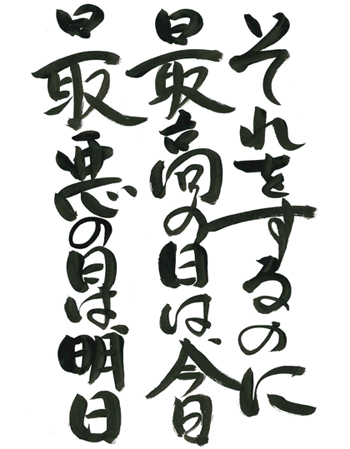 それをするのに
最高の日は、今日
最悪の日は、明日